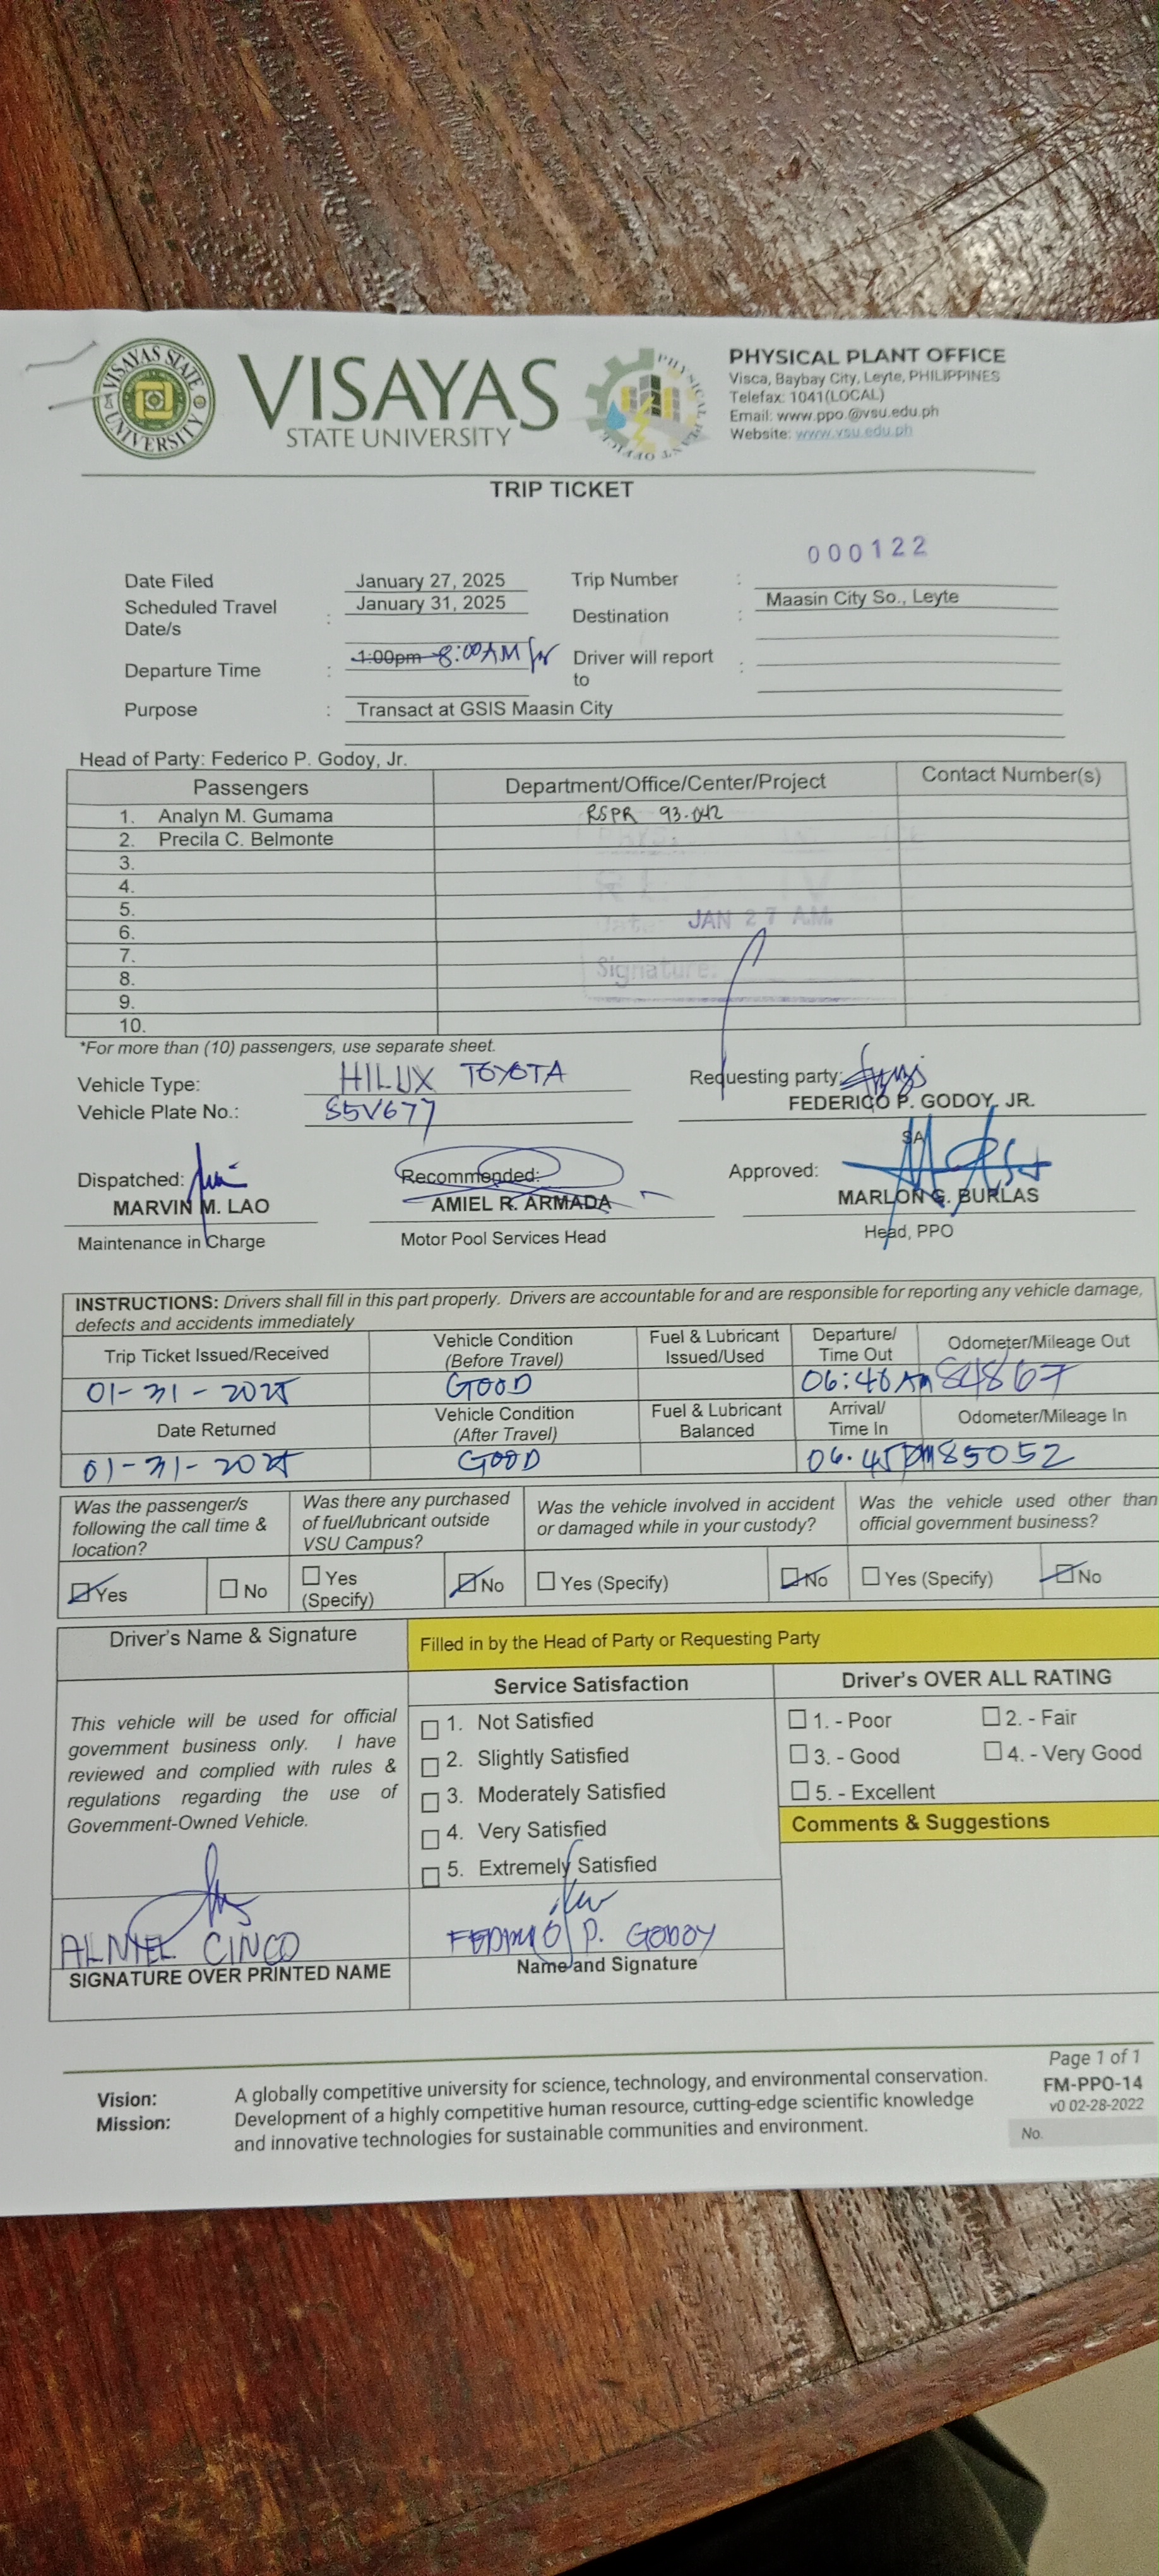 VISAYAS STATE UNIVERSITY
VISAYAS
STATE UNIVERSITY
PHYSICAL PLANT OFFICE
PHYSICAL PLANT OFFICE
Visca, Baybay City, Leyte, PHILIPPINES
Telefax: 1041(LOCAL)
Email: www.ppo.@vsu.edu.ph
Website: www.vsu.edu.ph
TRIP TICKET
000122
Date Filed January 27, 2025 Trip Number :
Scheduled Travel Date/s : January 31, 2025 Destination : Maasin City So., Leyte
Departure Time : 1:00pm 8:00AM Driver will report to :
Purpose : Transact at GSIS Maasin City
Head of Party: Federico P. Godoy, Jr.
Passengers Department/Office/Center/Project Contact Number(s)
1. Analyn M. Gumama RSPR 93-042
2. Precila C. Belmonte
3.
4.
5.
6.
7.
8.
9.
10.
JAN 27 A.M.
Signature:
*For more than (10) passengers, use separate sheet.
Vehicle Type: HILUX TOYOTA Requesting party:
Vehicle Plate No.: S5V677 FEDERICO P. GODOY, JR.
SA
Dispatched: Recommended: Approved:
MARVIN M. LAO AMIEL R. ARMADA MARLON G. BURLAS
Maintenance in Charge Motor Pool Services Head Head, PPO
INSTRUCTIONS: Drivers shall fill in this part properly. Drivers are accountable for and are responsible for reporting any vehicle damage,
defects and accidents immediately
Trip Ticket Issued/Received Vehicle Condition (Before Travel) Fuel & Lubricant Issued/Used Departure/ Time Out Odometer/Mileage Out
01-31-2025 GOOD 06:46 AM 84867
Date Returned Vehicle Condition (After Travel) Fuel & Lubricant Balanced Arrival/ Time In Odometer/Mileage In
01-31-2025 GOOD 06:45PM 85052
Was the passenger/s following the call time & location? Was there any purchased of fuel/lubricant outside VSU Campus? Was the vehicle involved in accident or damaged while in your custody? Was the vehicle used other than official government business?
Yes No Yes (Specify) No Yes (Specify) No Yes (Specify) No
Driver's Name & Signature Filled in by the Head of Party or Requesting Party
Service Satisfaction Driver's OVER ALL RATING
This vehicle will be used for official
government business only. I have
reviewed and complied with rules &
regulations regarding the use of
Government-Owned Vehicle.
1. Not Satisfied
2. Slightly Satisfied
3. Moderately Satisfied
4. Very Satisfied
5. Extremely Satisfied
1. - Poor 2. - Fair
3. - Good 4. - Very Good
5. - Excellent
Comments & Suggestions
ALNIEL CINCO P. GODOY
SIGNATURE OVER PRINTED NAME Name and Signature
Page 1 of 1
FM-PPO-14
v0 02-28-2022
No.
Vision: A globally competitive university for science, technology, and environmental conservation.
Mission: Development of a highly competitive human resource, cutting-edge scientific knowledge
and innovative technologies for sustainable communities and environment.